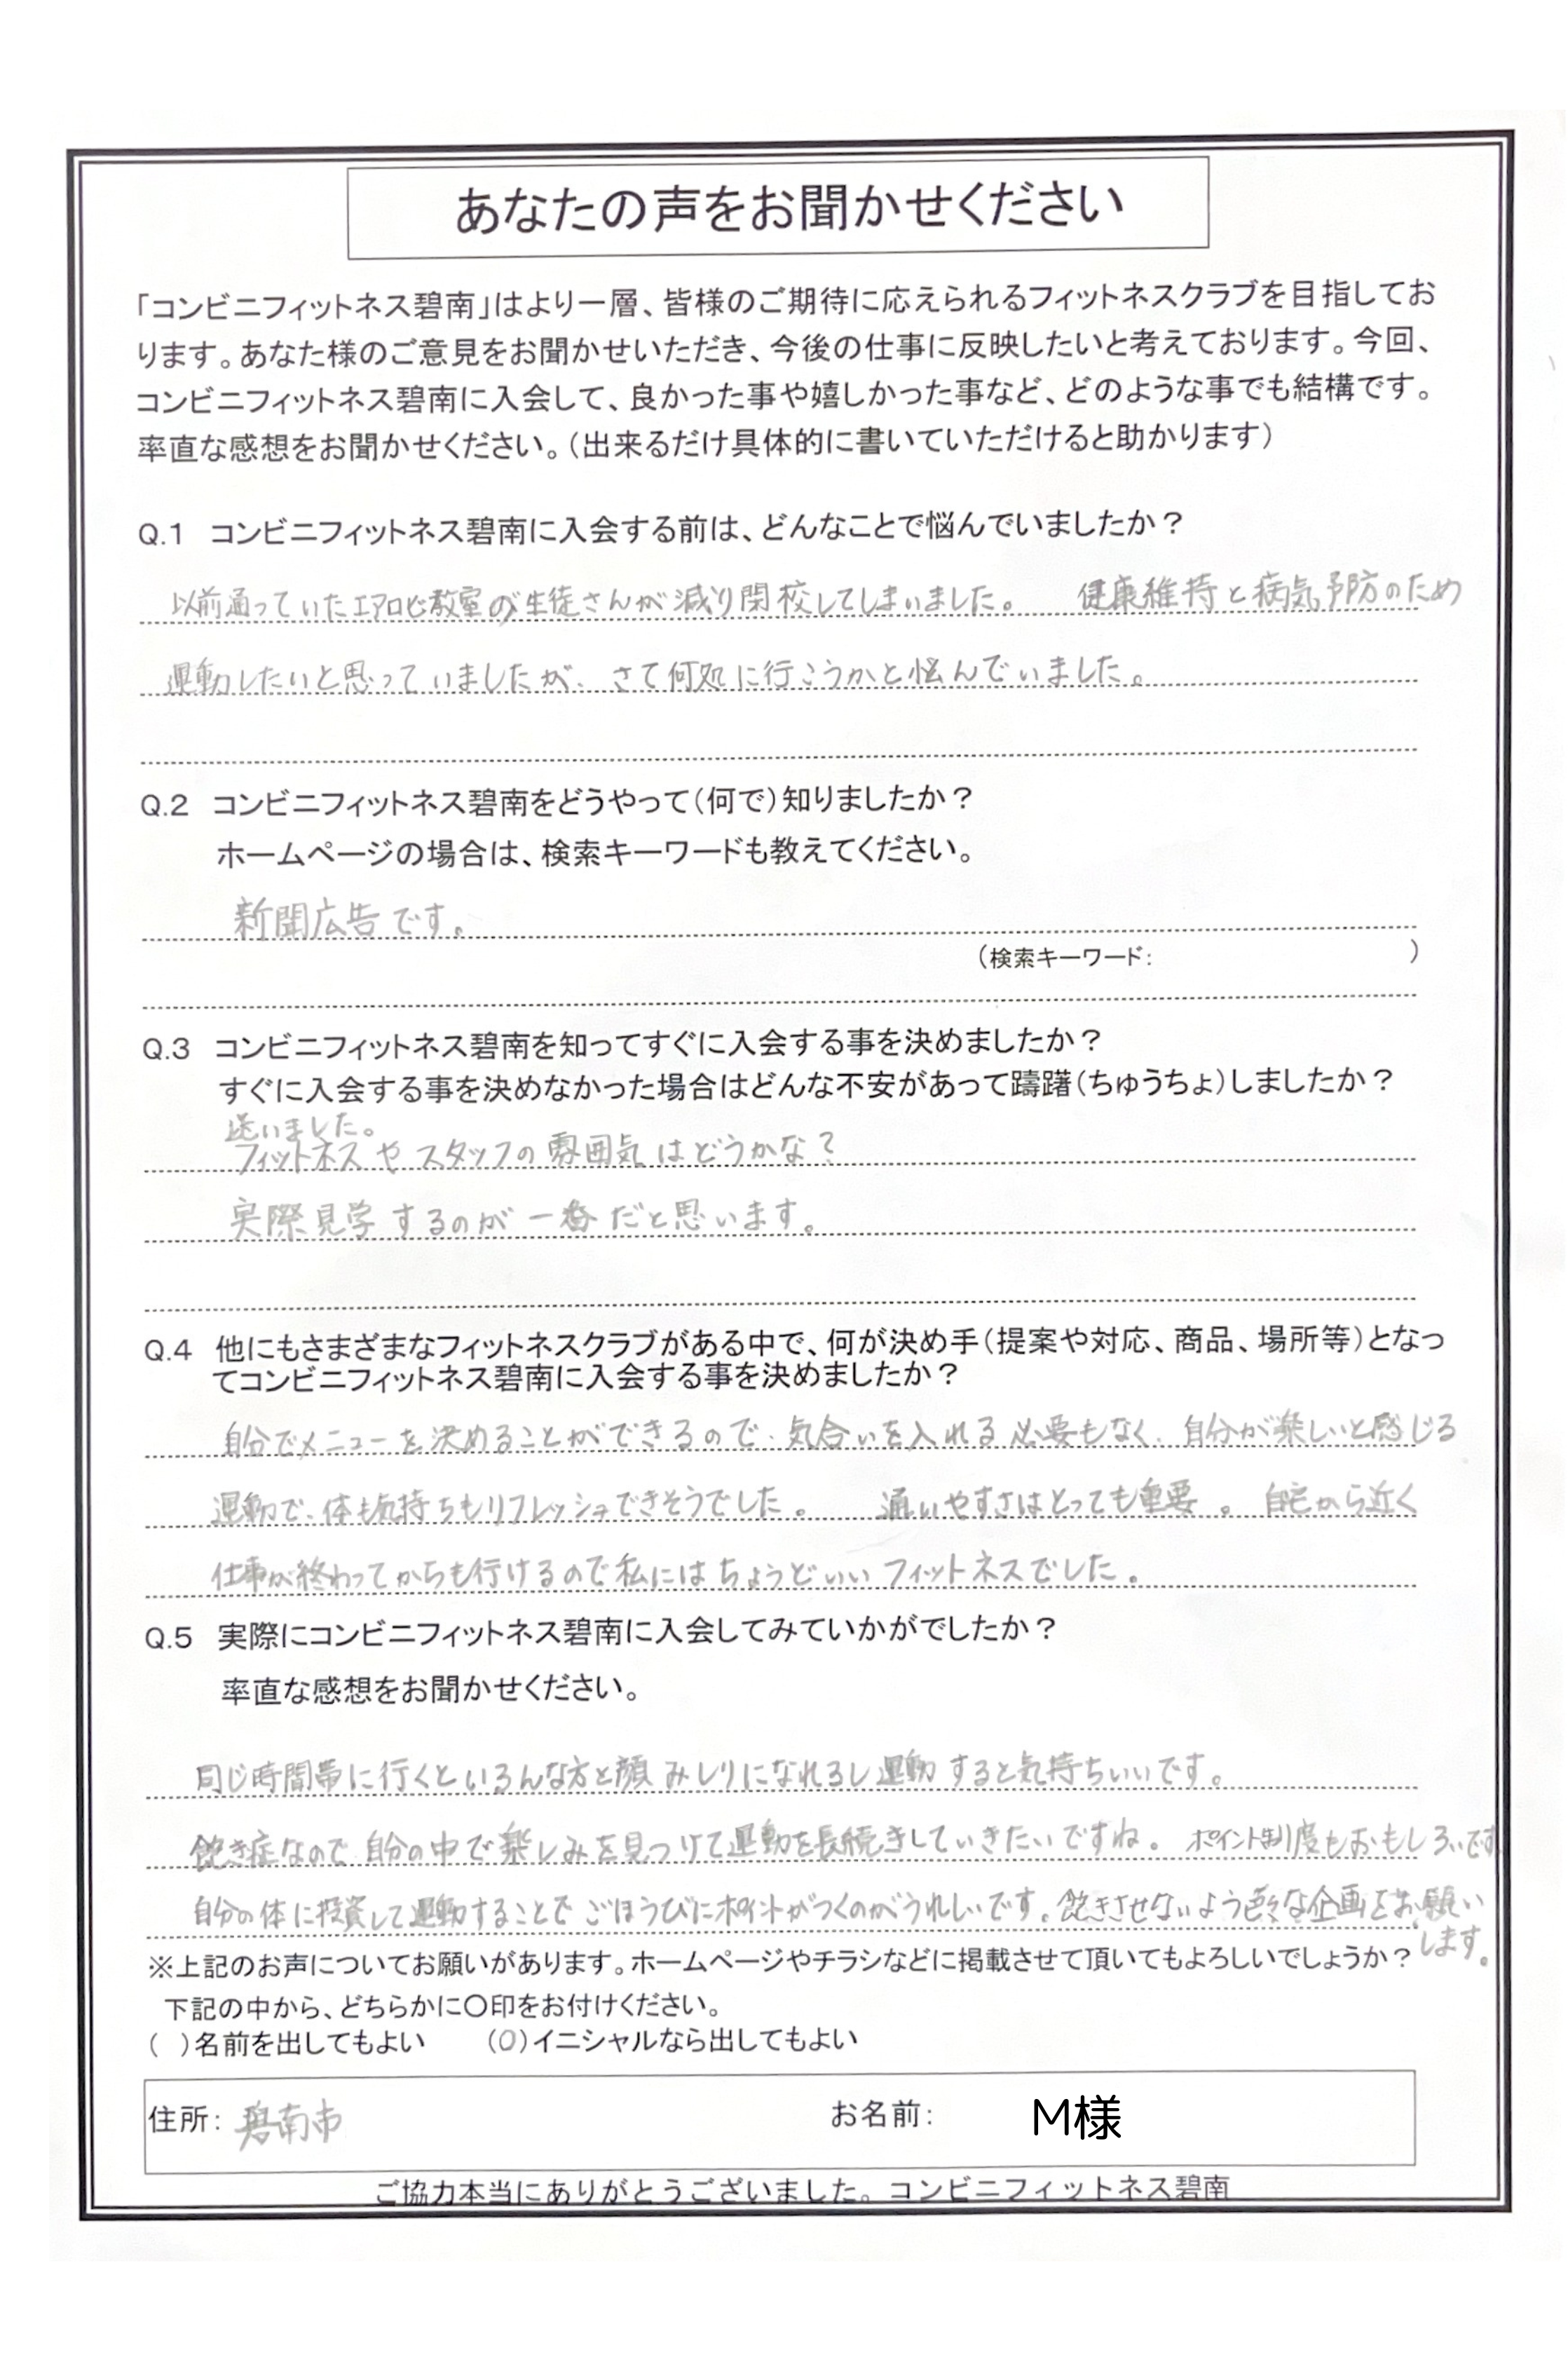 あなたの声をお聞かせください
「コンビニフィットネス碧南」はより一層、皆様のご期待に応えられるフィットネスクラブを目指してお
ります。あなた様のご意見をお聞かせいただき、今後の仕事に反映したいと考えております。今回、
コンビニフィットネス碧南に入会して、良かった事や嬉しかった事など、どのような事でも結構です。
率直な感想をお聞かせください。（出来るだけ具体的に書いていただけると助かります）
Q.1 コンビニフィットネス碧南に入会する前は、どんなことで悩んでいましたか？
以前通っていたエアロビ教室の生徒さんが減り閉校してしまいました。 健康維持と病気予防のため
運動したいと思っていましたが、さて何処に行こうかと悩んでいました。
Q.2 コンビニフィットネス碧南をどうやって（何で）知りましたか？
ホームページの場合は、検索キーワードも教えてください。
新聞広告です。
（検索キーワード： ）
Q.3 コンビニフィットネス碧南を知ってすぐに入会する事を決めましたか？
すぐに入会する事を決めなかった場合はどんな不安があって躊躇（ちゅうちょ）しましたか？
迷いました。
フィットネスやスタッフの雰囲気はどうかな？
実際見学するのが一番だと思います。
Q.4 他にもさまざまなフィットネスクラブがある中で、何が決め手（提案や対応、商品、場所等）となっ
てコンビニフィットネス碧南に入会する事を決めましたか？
自分でメニューを決めることができるので、気合いを入れる必要もなく、自分が楽しいと感じる
運動で、体も気持ちもリフレッシュできそうでした。 通いやすさはとっても重要。自宅から近く
仕事が終わってからも行けるので私にはちょうどいいフィットネスでした。
Q.5 実際にコンビニフィットネス碧南に入会してみていかがでしたか？
率直な感想をお聞かせください。
同じ時間帯に行くといろんな方と顔みしりになれるし運動すると気持ちいいです。
飽き症なので自分の中で楽しみを見つけて運動を長続きしていきたいですね。ポイント制度もおもしろいです
自分の体に投資して運動することでごほうびにポイントがつくのがうれしいです。飽きさせないよう色々な企画をお願い
します。
※上記のお声についてお願いがあります。ホームページやチラシなどに掲載させて頂いてもよろしいでしょうか？
下記の中から、どちらかに〇印をお付けください。
（ ）名前を出してもよい （〇）イニシャルなら出してもよい
住所： 碧南市 お名前： M様
ご協力本当にありがとうございました。コンビニフィットネス碧南